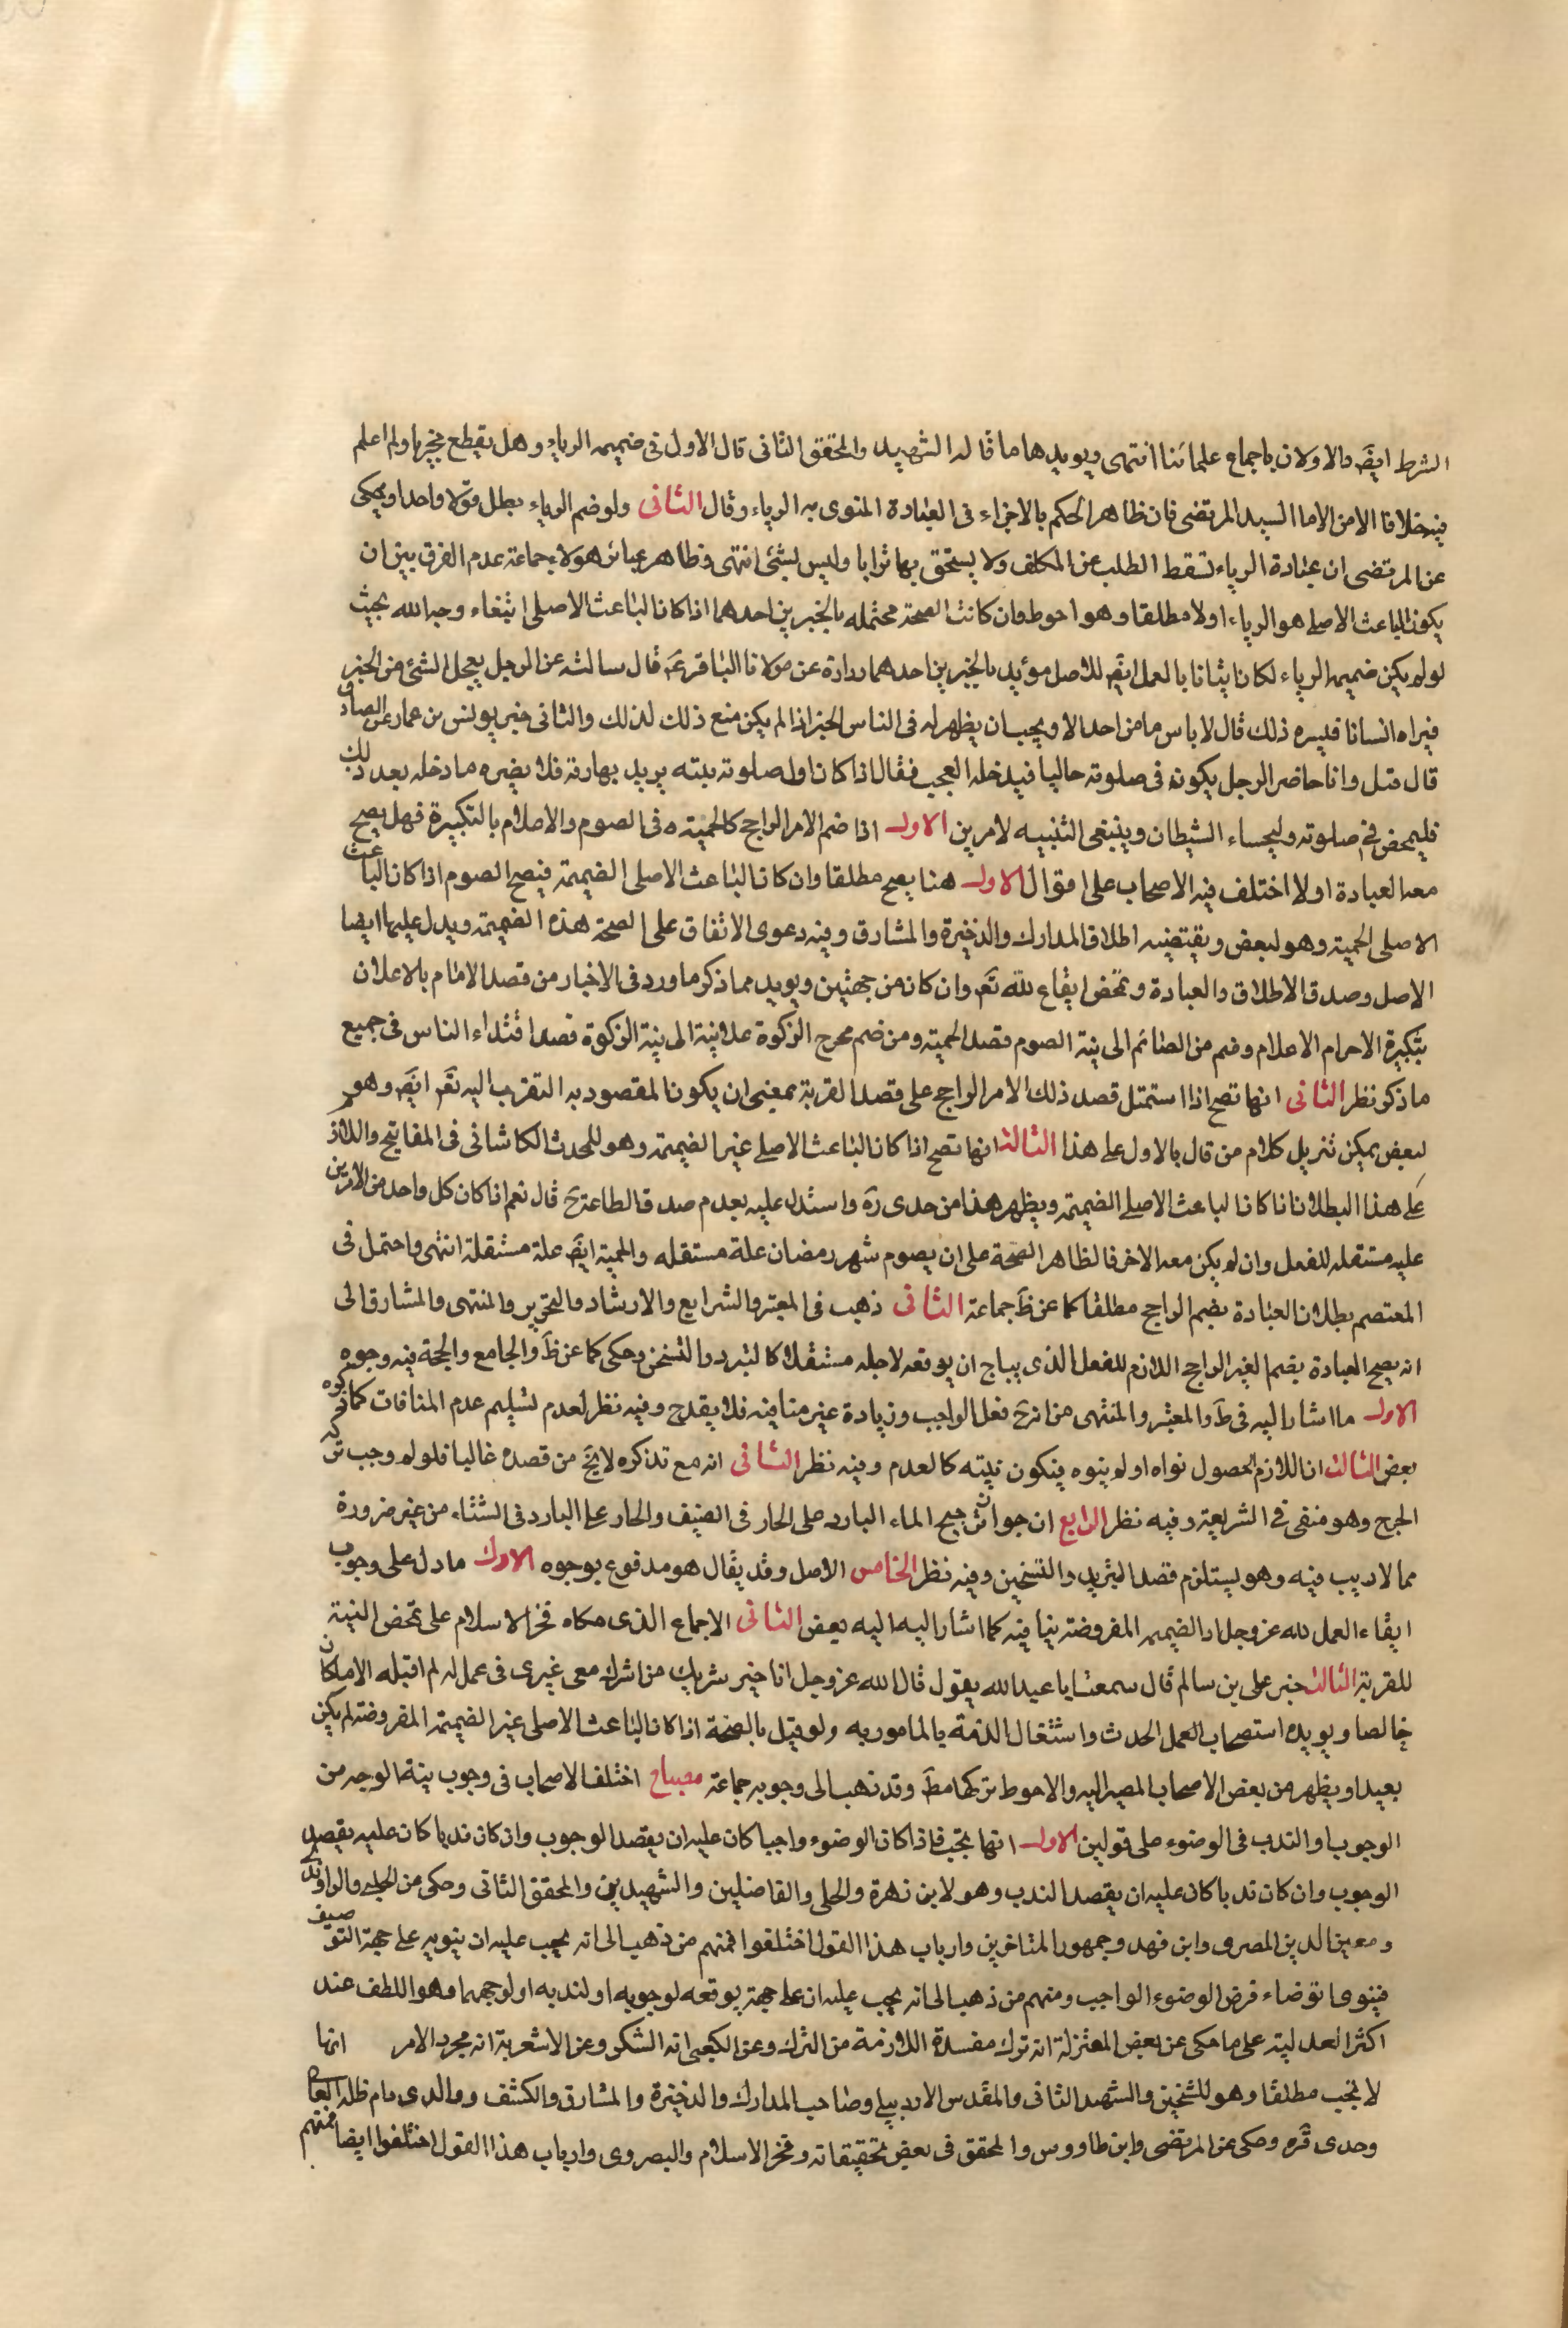 الشرط ايضَ والاولان باجماع علمائنا انتهى ويويدها ما قاله الشهيد والمحقق الثانى قال الاول فى ضميمه الرياء وهل يقطع فيخبر بها ولم اعلم
فيه خلافا الا من الاما السيد المرتضى فان ظاهر الحكم بالاجزاء فى العبادة المنوى به الرياء وقال الثانى ولو ضم الرياء بطل قولا واحدا ويحكى
عن المرتضى ان عبادة الرياء تسقط الطلب عن المكلف ولا يستحق بها ثوابا وليس بشئ انتهى وظاهر عبائر هولاء جماعة عدم الفرق بين ان
يكون الباعث الاصلى هو الرياء اولا مطلقا وهو احوط وان كانت الصحة محتمله بالخبرين احدهما اذا كان الباعث الاصلى ابتغاء وجه الله بحيث
لو لم يكن ضميمه الرياء لكان ياتنا بالعمل ايضَ للاصل مؤيد بالخبرين احدهما رواة عن مولانا الباقر عَم قال سالته عن الرجل يعجل الشئ من الخير
فيراه انسانا فيسره ذلك قال لا باس ما من احد الا ويحب ان يظهر له فى الناس الخير اذا لم يكن صنع ذلك لذلك والثانى خبر يونس بن عمار عن الصادق
قال قيل وانا حاضر الرجل يكون فى صلوته خاليا فيدخله العجب فقال اذا كان اول صلوته بنيته يريد بها ربه فلا يضره ما دخله بعد ذلك
فليمض فى صلوته وليخساء الشيطان وينبغى التنبيه لامرين الاول اذا ضم الامر الراجح كالحمية فى الصوم والاعلام بالتكبيرة فهل يصح
معه العبادة اولا اختلف فيه الاصحاب على اقوال الاول هنا يصح مطلقا وان كان الباعث الاصلى الضميمة فيصح الصوم اذا كان الباعث
الاصلى الحمية وهو لبعض ويقتضيه اطلاق المدارك والذخيرة والمشارق وفيه دعوى الاتفاق على الصحة هذه الضميمة ويدل عليها ايضا
الاصل وصدق الاطلاق والعبادة وتمحض ايقاع لله تعَ وان كان من جهتين ويويد مما ذكر ما ورد فى الاخبار من قصد الامام بالاعلان
بتكبيرة الاحرام الاعلام وضم من الصائم الى نية الصوم قصد الحمية ومن ضم مخرج الزكوة علانية الى نية الزكوة قصد اقتداء الناس فى جميع
ما ذكر نظر الثانى انها تصح اذا استمتل قصد ذلك الامر الراجح على قصد القربة بمعنى ان يكون المقصود به التقرب اليه تعَ ايضَ وهو
لبعض يمكن تنزيل كلام من قال بالاول على هذا الثالث انها تصح اذا كان الباعث الاصلى غير الضميمة وهو للمحدث الكاشانى فى المفاتيح واللاذ
على هذا البطلان اذا كان الباعث الاصلى الضميمة ويظهر هذا من جدى رَه واستدل عليه بعدم صدق الطاعة حَ قال نعم اذا كان كل واحد من الامرين
عليه مستقله للفعل وان لم يكن معه الاخر فالظاهر الصحة على ان يصوم شهر رمضان علة مستقله والحمية ايضَ علة مستقلة انتهى واحتمل فى
المعتصم بطلان العبادة بضم الراجح مطلقا كما عن ظَ جماعة الثانى ذهب فى المعتبر والشرايع والارشاد والتحرير والمنتهى والمشارق الى
انه يصح العبادة بضم الغير الراجح اللازم للفعل الذى يباح ان يوقعه لاجله مستقلا كالتبرد والتسخن وحكى كما عن ظَ والجامع والحجة فيه وجوه
الاول ما اشار اليه فى طَ والمعتبر والمنتهى من انه حَ فعل الواجب وزيادة غير منافيه فلا يقدح وفيه نظر لعدم تسليم عدم المنافات كما ذكره
بعض الثالث ان اللازم الحصول نواه او لم ينوه فيكون نيته كالعدم وفيه نظر الثانى انه مع تذكره لا يخَ من قصده غاليا فلولم وجب تركه
الحرج وهو منفى فى الشريعة وفيه نظر الرابع ان جوان ترجيح الماء البارد على الحار فى الصيف والحار على البارد فى الشتاء من غير ضرورة
مما لا ريب فيه وهو يستلزم قصد التبريد والتسخين وفيه نظر الخامس الاصل وقد يقال هو مدفوع بوجوه الاول ما دل على وجوب
ايقاء العمل لله عز وجل اذ الضميمه المفروضة ينافيه كما اشار اليه اليه بعض الثانى الاجماع الذى حكاه فخر الاسلام على تمحض النية
للقربة الثالث خبر على بن سالم قال سمعت ابا عبد الله يقول قال الله عز وجل انا خير شريك من اشرك معى غيرى فى عمل له لم اقبله الا ما كان
خالصا ويويده استصحاب العمل الحدث واشتغال الذمة بالمامور به ولو قيل بالصحة اذا كان الباعث الاصلى غير الضميمة المفروضة لم يكن
بعيدا ويظهر من بعض الاصحاب المصير اليه والاحوط تركها مطَ وقد ذهب الى وجوبه جماعة مصباح اختلف الاصحاب فى وجوب نية الوجه من
الوجوب او الندب فى الوضوء على قولين الاول انها تجب فاذا كان الوضوء واجبا كان عليه ان يقصد الوجوب وان كان ندبا كان عليه يقصد
الوجوب وان كان ندبا كان عليه ان يقصد الندب وهو لابن زهرة والحلى والفاضلين والشهيدين والمحقق الثانى وحكى من الحلبى والراوندى
ومعين الدين المصرى وابن فهد وجمهور المتاخرين وارباب هذا القول اختلفوا فمنهم من ذهب الى انه يجب عليه ان ينويه على جهة التوصيف
فينوى اتوضاء فرض الوضوء الواجب ومنهم من ذهب الى انه يجب عليه ان على جهة يوقعه لوجوبه او لندبه او لوجههما وهو اللطف عند
اكثر العدلية على ما حكى عن بعض المعتزلة انه ترك مفسدة اللازمة من الترك وعن الكعبى انه الشكر وعن الاشعرية انه مجرد الامر انها
لا تجب مطلقا وهو للشيخين والشهيد الثانى والمقدس الاردبيلى وصاحب المدارك والذخيرة والمشارق والكشف ووالدى دام ظله العالى
وجدى قَره وحكى عن المرتضى وابن طاووس والمحقق فى بعض تحقيقاته وفخر الاسلام والبصروى وارباب هذا القول اختلفوا ايضا فمنهم